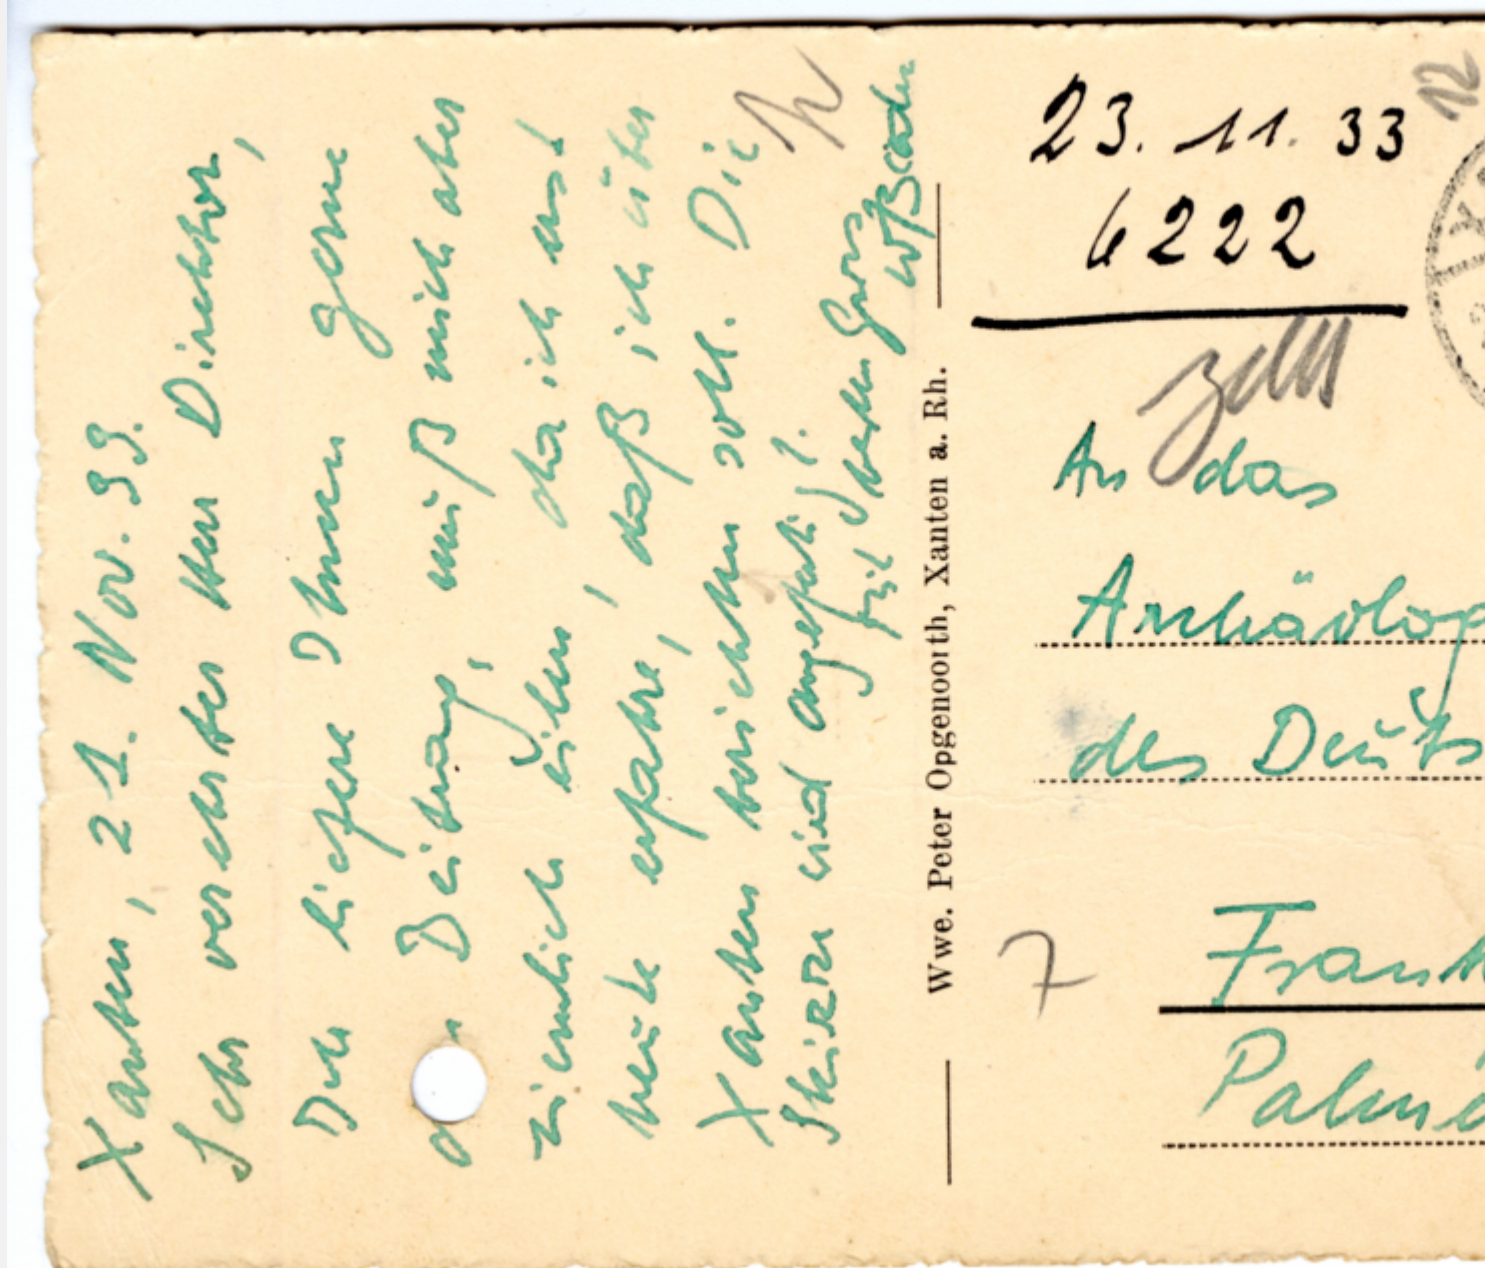 Xanten, 21. Nov. 33.
Sehr verehrter Herr Direktor,
Ich liefere Ihnen gerne
den Beitrag, muß mich aber
ziemlich eilen, da ich erst
heute erfahre, daß ich über
Xanten berichten soll. Die
Skizzen sind angefertigt.
Mit besten Gruß
W Bader
Wwe. Peter Opgenoorth, Xanten a. Rh.
12
23. 11. 33
6222
An das
Archäolog
des Deuts
7
Frank
Palme